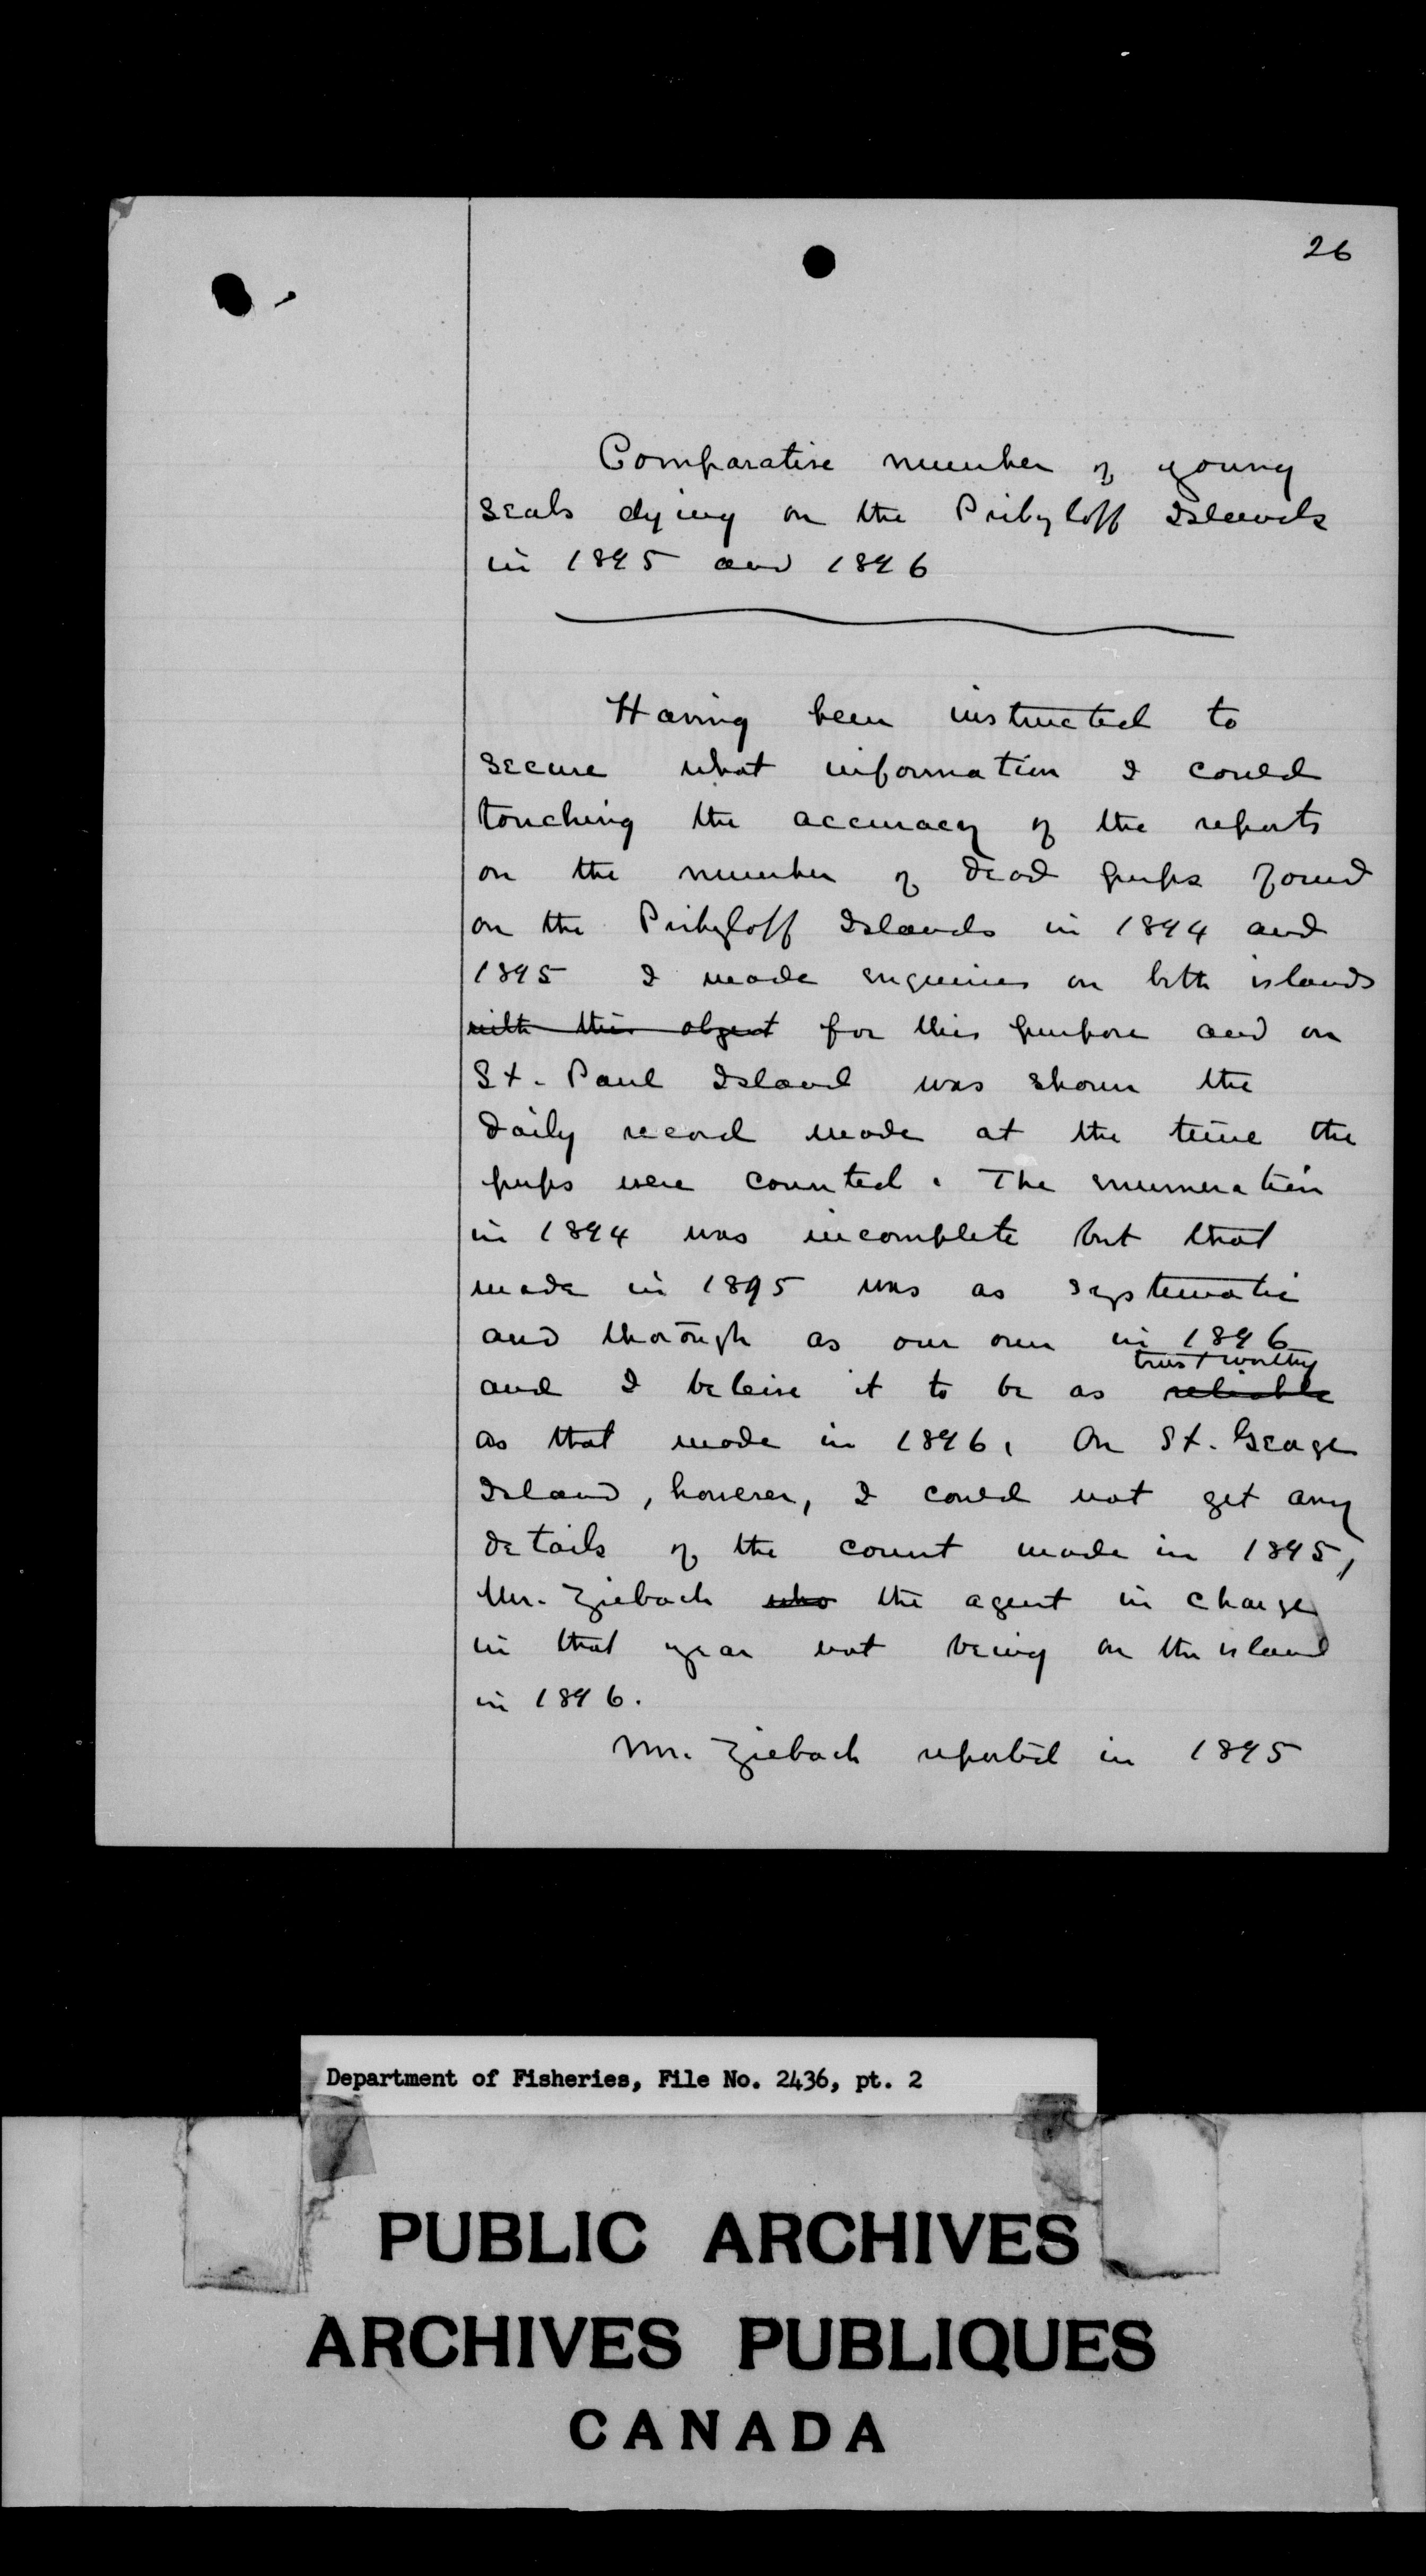 26
Comparative number of young
seals dying on the Pribyloff Islands
in 1895 and 1896
Having been instructed to
secure what information I could
touching the accuracy of the reports
on the number of dead pups found
on the Pribyloff Islands in 1894 and
1895 I made enquiries on both islands
with this object for this purpose and on
St. Paul Island was shown the
daily record made at the time the
pups were counted. The enumeration
in 1894 was incomplete but that
made in 1895 was as systematic
and thorough as our own in 1896
trustworthy
and I beleive it to be as reliable
as that made in 1896. On St. George
Island, however, I could not get any
details of the count made in 1895,
Mr. Ziebach who the agent in charge
in that year not being on the island
in 1896.
Mr. Ziebach reported in 1895
Department of Fisheries, File No. 2436, pt. 2
PUBLIC ARCHIVES
ARCHIVES PUBLIQUES
CANADA